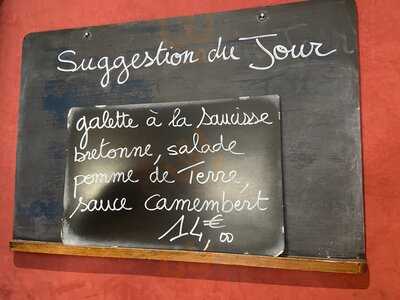 Suggestion du Jour
galette à la Saucisse
bretonne, salade
pomme de Terre,
sauce Camembert
14,€00